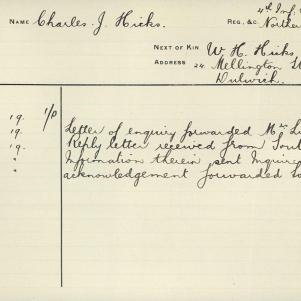 4th Inf.
NAME Charles. J. Hicks. REG, &C. Norther
NEXT OF KIN W. H. Hicks
ADDRESS 24 Mellington St
Dulwich.
19. 1/P Letter of enquiry forwarded Mr
19. Reply letter received from Sout
" Information therein sent Inquire
" acknowledgement forwarded